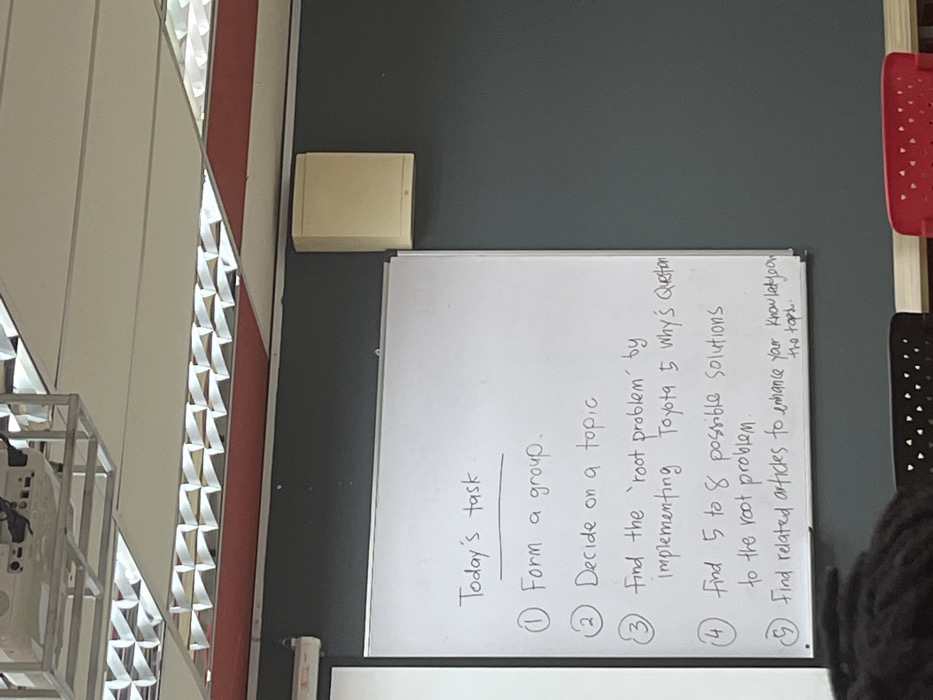 Today's task
① Form a group.
② Decide on a topic
③ Find the 'root problem' by
implementing Toyota 5 Why's Question
④ Find 5 to 8 possible solutions
to the root problem.
⑤ Find related articles to enhance your knowledge on
the topic.